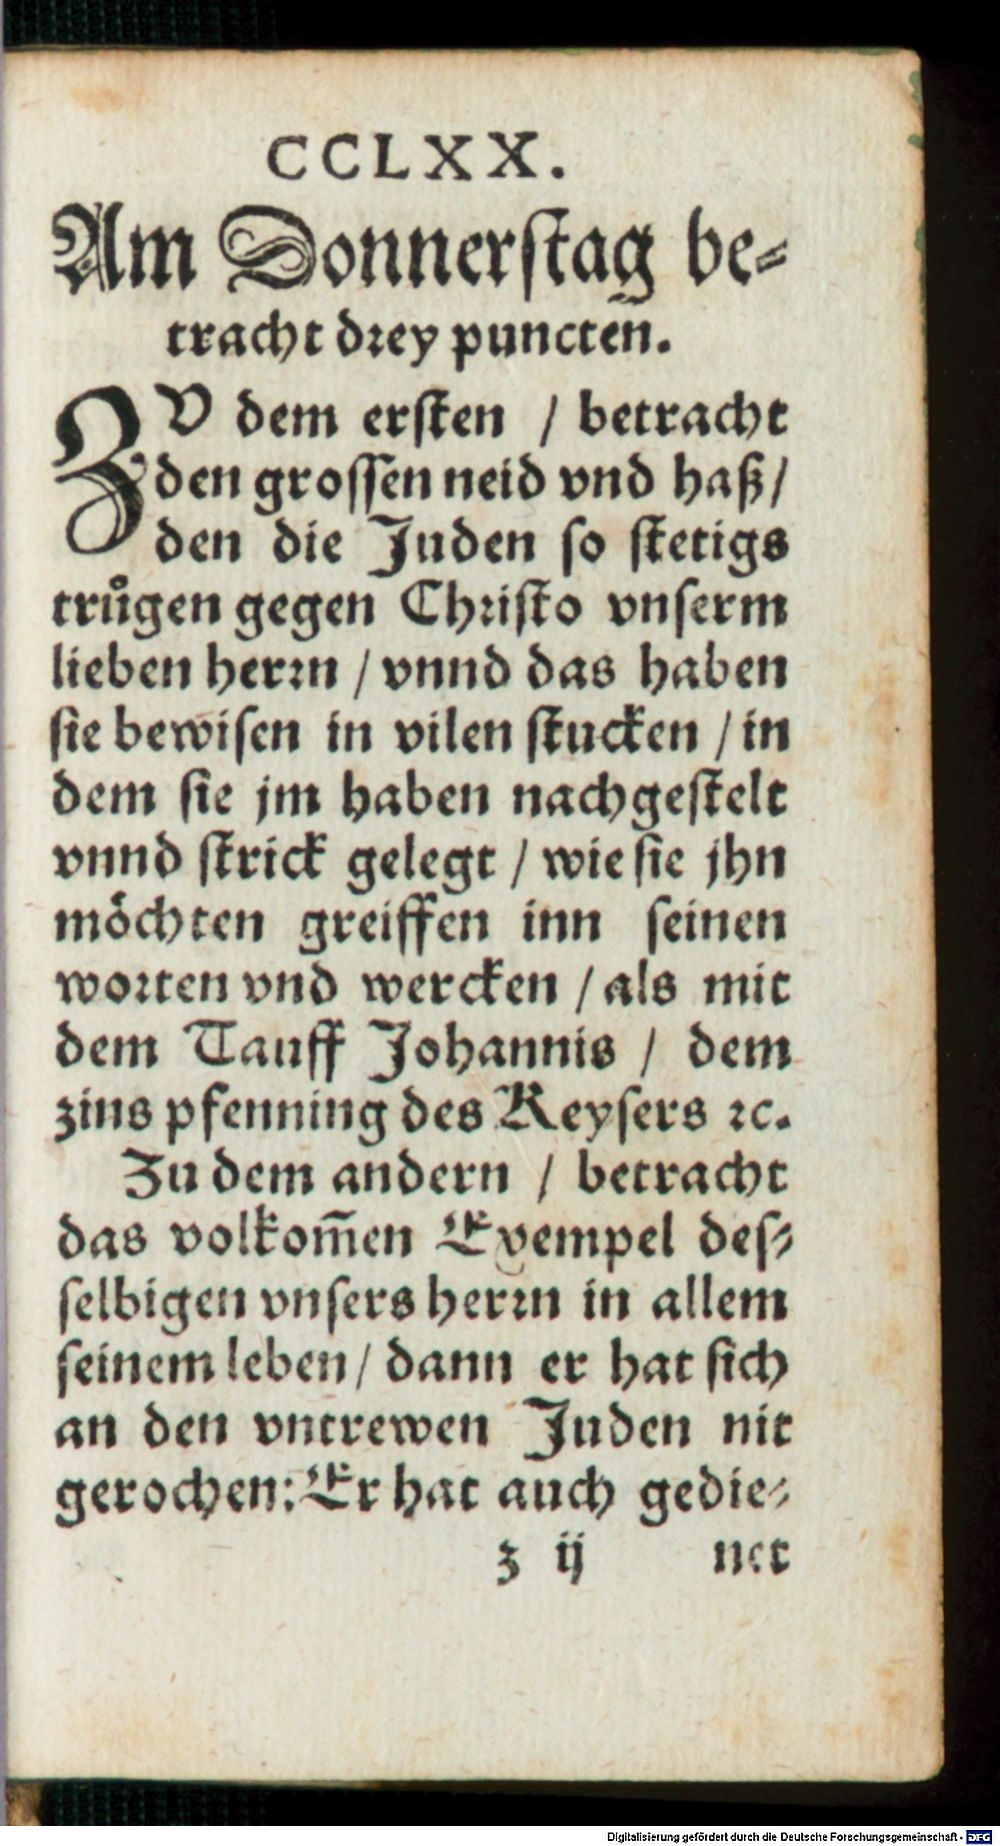 CCLXX.
Am Donnerſtag be⸗
tracht drey puncten.
ZV dem erſten / betracht
den groſſen neid vnd haß /
den die Juden ſo ſtetigs
trůgen gegen Chriſto vnſerm
lieben herrn / vnnd das haben
ſie bewiſen in vilen ſtucken / in
dem ſie jm haben nachgeſtelt
vnnd ſtrick gelegt / wie ſie jhn
möchten greiffen inn ſeinen
worten vnd wercken / als mit
dem Tauff Johannis / dem
zins pfenning des Keyſers ꝛc.
Zu dem andern / betracht
das volkom̃en Exempel deſ⸗
ſelbigen vnſers herrn in allem
ſeinem leben / dann er hat ſich
an den vntrewen Juden nit
gerochen: Er hat auch gedie⸗
z ij net
Digitalisierung gefördert durch die Deutsche Forschungsgemeinschaft - DFG